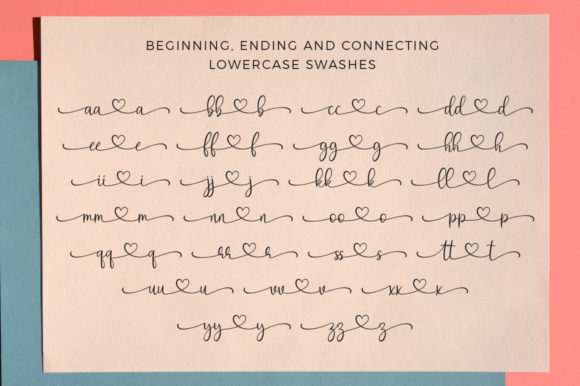 BEGINNING, ENDING AND CONNECTING
LOWERCASE SWASHES
aa♡a bb♡b cc♡c dd♡d
ee♡e ff♡f gg♡g hh♡h
ii♡i jj♡j kk♡k ll♡l
mm♡m nn♡n oo♡o pp♡p
qq♡q rr♡r ss♡s tt♡t
uu♡u vv♡v xx♡x
yy♡y zz♡z